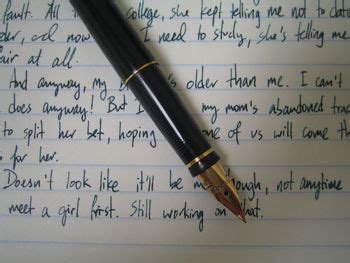 fault. All college, she kept telling me not to date
and now I need to study, she's telling me
fair at all.
And anyway, my older than me. I can't
does anyway! But I my mom's abandoned
to split her bet, hoping one of us will come
for her.
Doesn't look like it'll be me though, not anytime
meet a girl first. Still working on that.